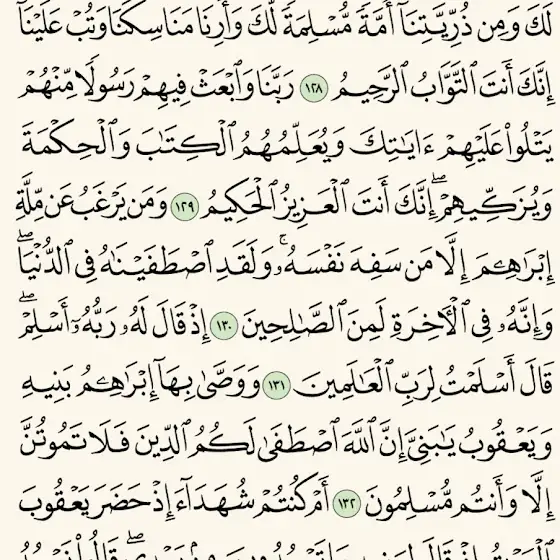 لَكَ وَمِن ذُرِّيَّتِنَآ أُمَّةً مُّسۡلِمَةً لَّكَ وَأَرِنَا مَنَاسِكَنَا وَتُبۡ عَلَيۡنَآ
إِنَّكَ أَنتَ ٱلتَّوَّابُ ٱلرَّحِيمُ ١٢٨ رَبَّنَا وَٱبۡعَثۡ فِيهِمۡ رَسُولٗا مِّنۡهُمۡ
يَتۡلُواْ عَلَيۡهِمۡ ءَايَٰتِكَ وَيُعَلِّمُهُمُ ٱلۡكِتَٰبَ وَٱلۡحِكۡمَةَ
وَيُزَكِّيهِمۡۖ إِنَّكَ أَنتَ ٱلۡعَزِيزُ ٱلۡحَكِيمُ ١٢٩ وَمَن يَرۡغَبُ عَن مِّلَّةِ
إِبۡرَٰهِـۧمَ إِلَّا مَن سَفِهَ نَفۡسَهُۥۚ وَلَقَدِ ٱصۡطَفَيۡنَٰهُ فِي ٱلدُّنۡيَاۖ
وَإِنَّهُۥ فِي ٱلۡأٓخِرَةِ لَمِنَ ٱلصَّٰلِحِينَ ١٣٠ إِذۡ قَالَ لَهُۥ رَبُّهُۥٓ أَسۡلِمۡۖ
قَالَ أَسۡلَمۡتُ لِرَبِّ ٱلۡعَٰلَمِينَ ١٣١ وَوَصَّىٰ بِهَآ إِبۡرَٰهِـۧمُ بَنِيهِ
وَيَعۡقُوبُ يَٰبَنِيَّ إِنَّ ٱللَّهَ ٱصۡطَفَىٰ لَكُمُ ٱلدِّينَ فَلَا تَمُوتُنَّ
إِلَّا وَأَنتُم مُّسۡلِمُونَ ١٣٢ أَمۡ كُنتُمۡ شُهَدَآءَ إِذۡ حَضَرَ يَعۡقُوبَ